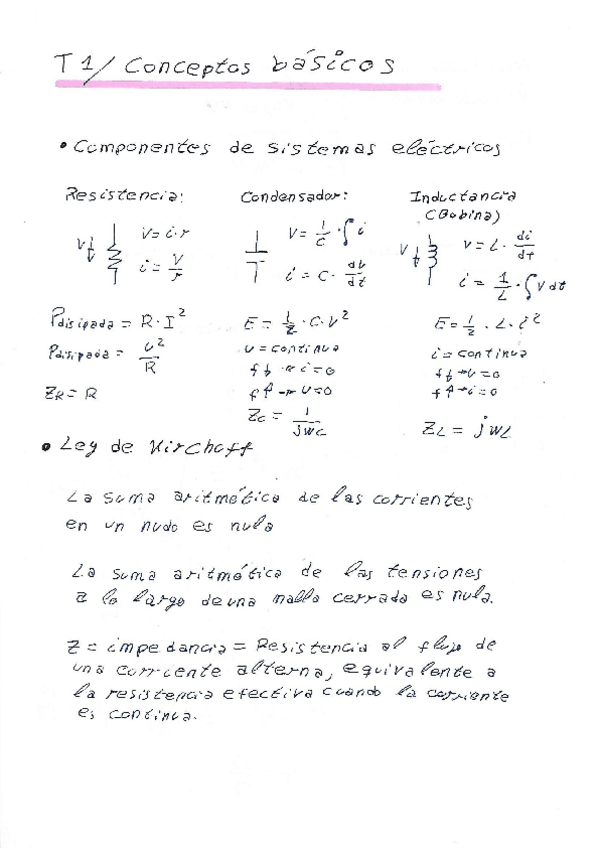 T1/ Conceptos básicos
• Componentes de sistemas eléctricos
Resistencia:
V = i·r
i = V/r
V
Pdisipada = R·I²
Pdisipada = U²/R
ZR = R
Condensador:
V = 1/C · ∫i
i = C· dV/dt
E = 1/2 · C·V²
U = continua
f↓ → i=0
f↑ → U=0
ZC = 1/jwC
Inductancia
(Bobina)
V
V = L· di/dt
i = 1/L · ∫V dt
E = 1/2 · L·i²
i = continua
f↓ → U=0
f↑ → i=0
ZL = jwL
• Ley de Kirchoff
La suma aritmética de las corrientes
en un nudo es nula
La suma aritmética de las tensiones
a lo largo de una malla cerrada es nula.
Z = impedancia = Resistencia al flujo de
una corriente alterna, equivalente a
la resistencia efectiva cuando la corriente
es continua.